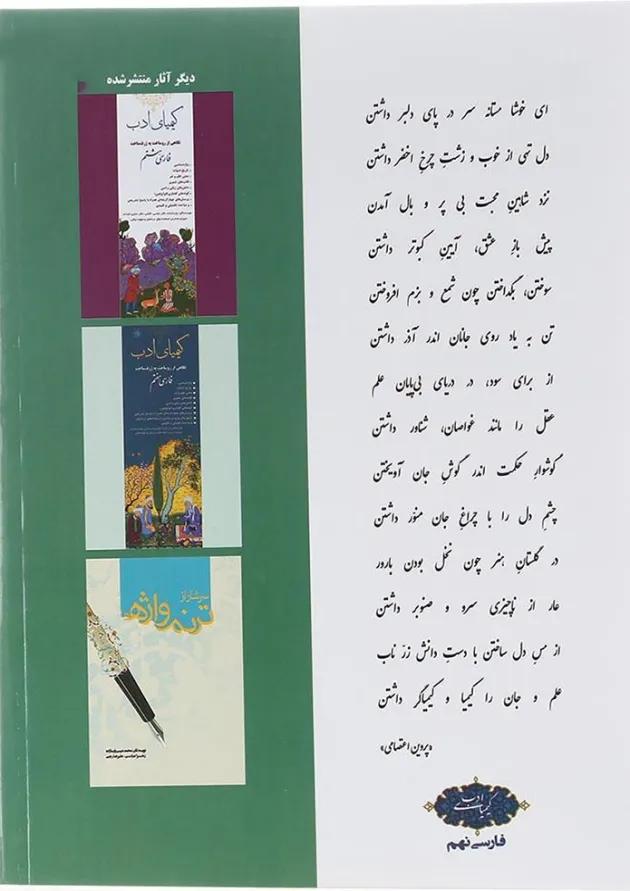 ای خوشا مستانه سر در پای دلبر داشتن
دل تهی از خوب و زشتِ چرخِ اخضر داشتن
نزد شاهینِ محبت بی پر و بال آمدن
پیش بازِ عشق، آیینِ کبوتر داشتن
سوختن، بگداختن چون شمع و بزم افروختن
تن به یاد روی جانان اندر آذر داشتن
از برای سود، در دریای بی‌پایان علم
عقل را مانند غواصان، شناور داشتن
گوشوارِ حکمت اندر گوشِ جان آویختن
چشمِ دل را با چراغِ جان منوّر داشتن
در گلستانِ هنر چون نخل بودن بارور
عار از ناچیزی سرو و صنوبر داشتن
از مسِ دل ساختن با دستِ دانش زرّ ناب
علم و جان را کیمیا و کیمیاگر داشتن
«پروین اعتصامی»
کیمیای ادب
فارسی نهم
دیگر آثار منتشر شده
کیمیای ادب
نگاهی از روساخت به ژرف‌ساخت
فارسی هشتم
کیمیای ادب
نگاهی از روساخت به ژرف‌ساخت
فارسی هفتم
سرشار از
ترنم واژه‌ها